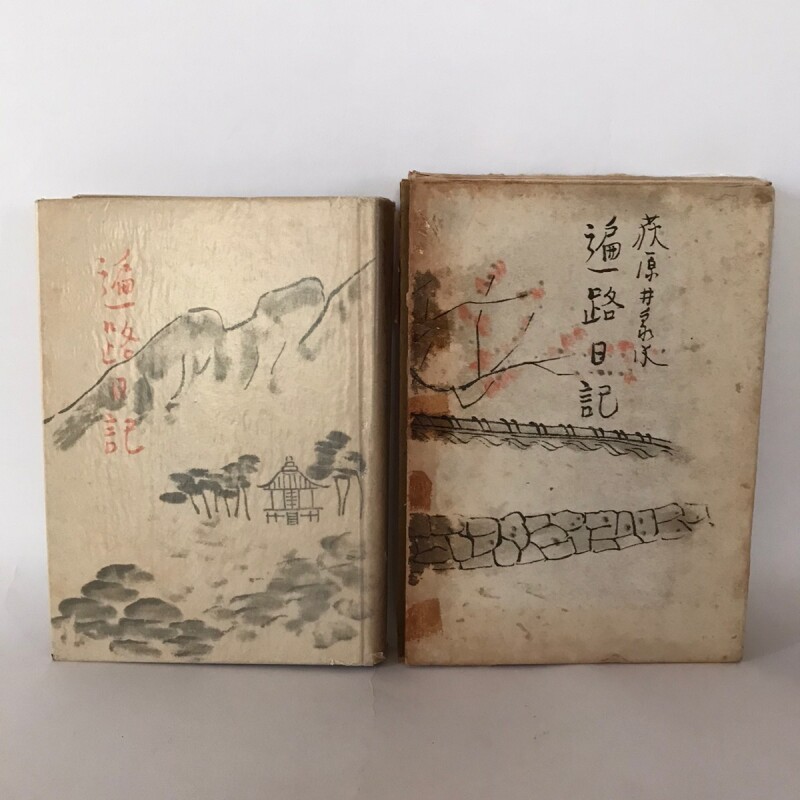 遍路日記
荻原井泉水
遍路日記